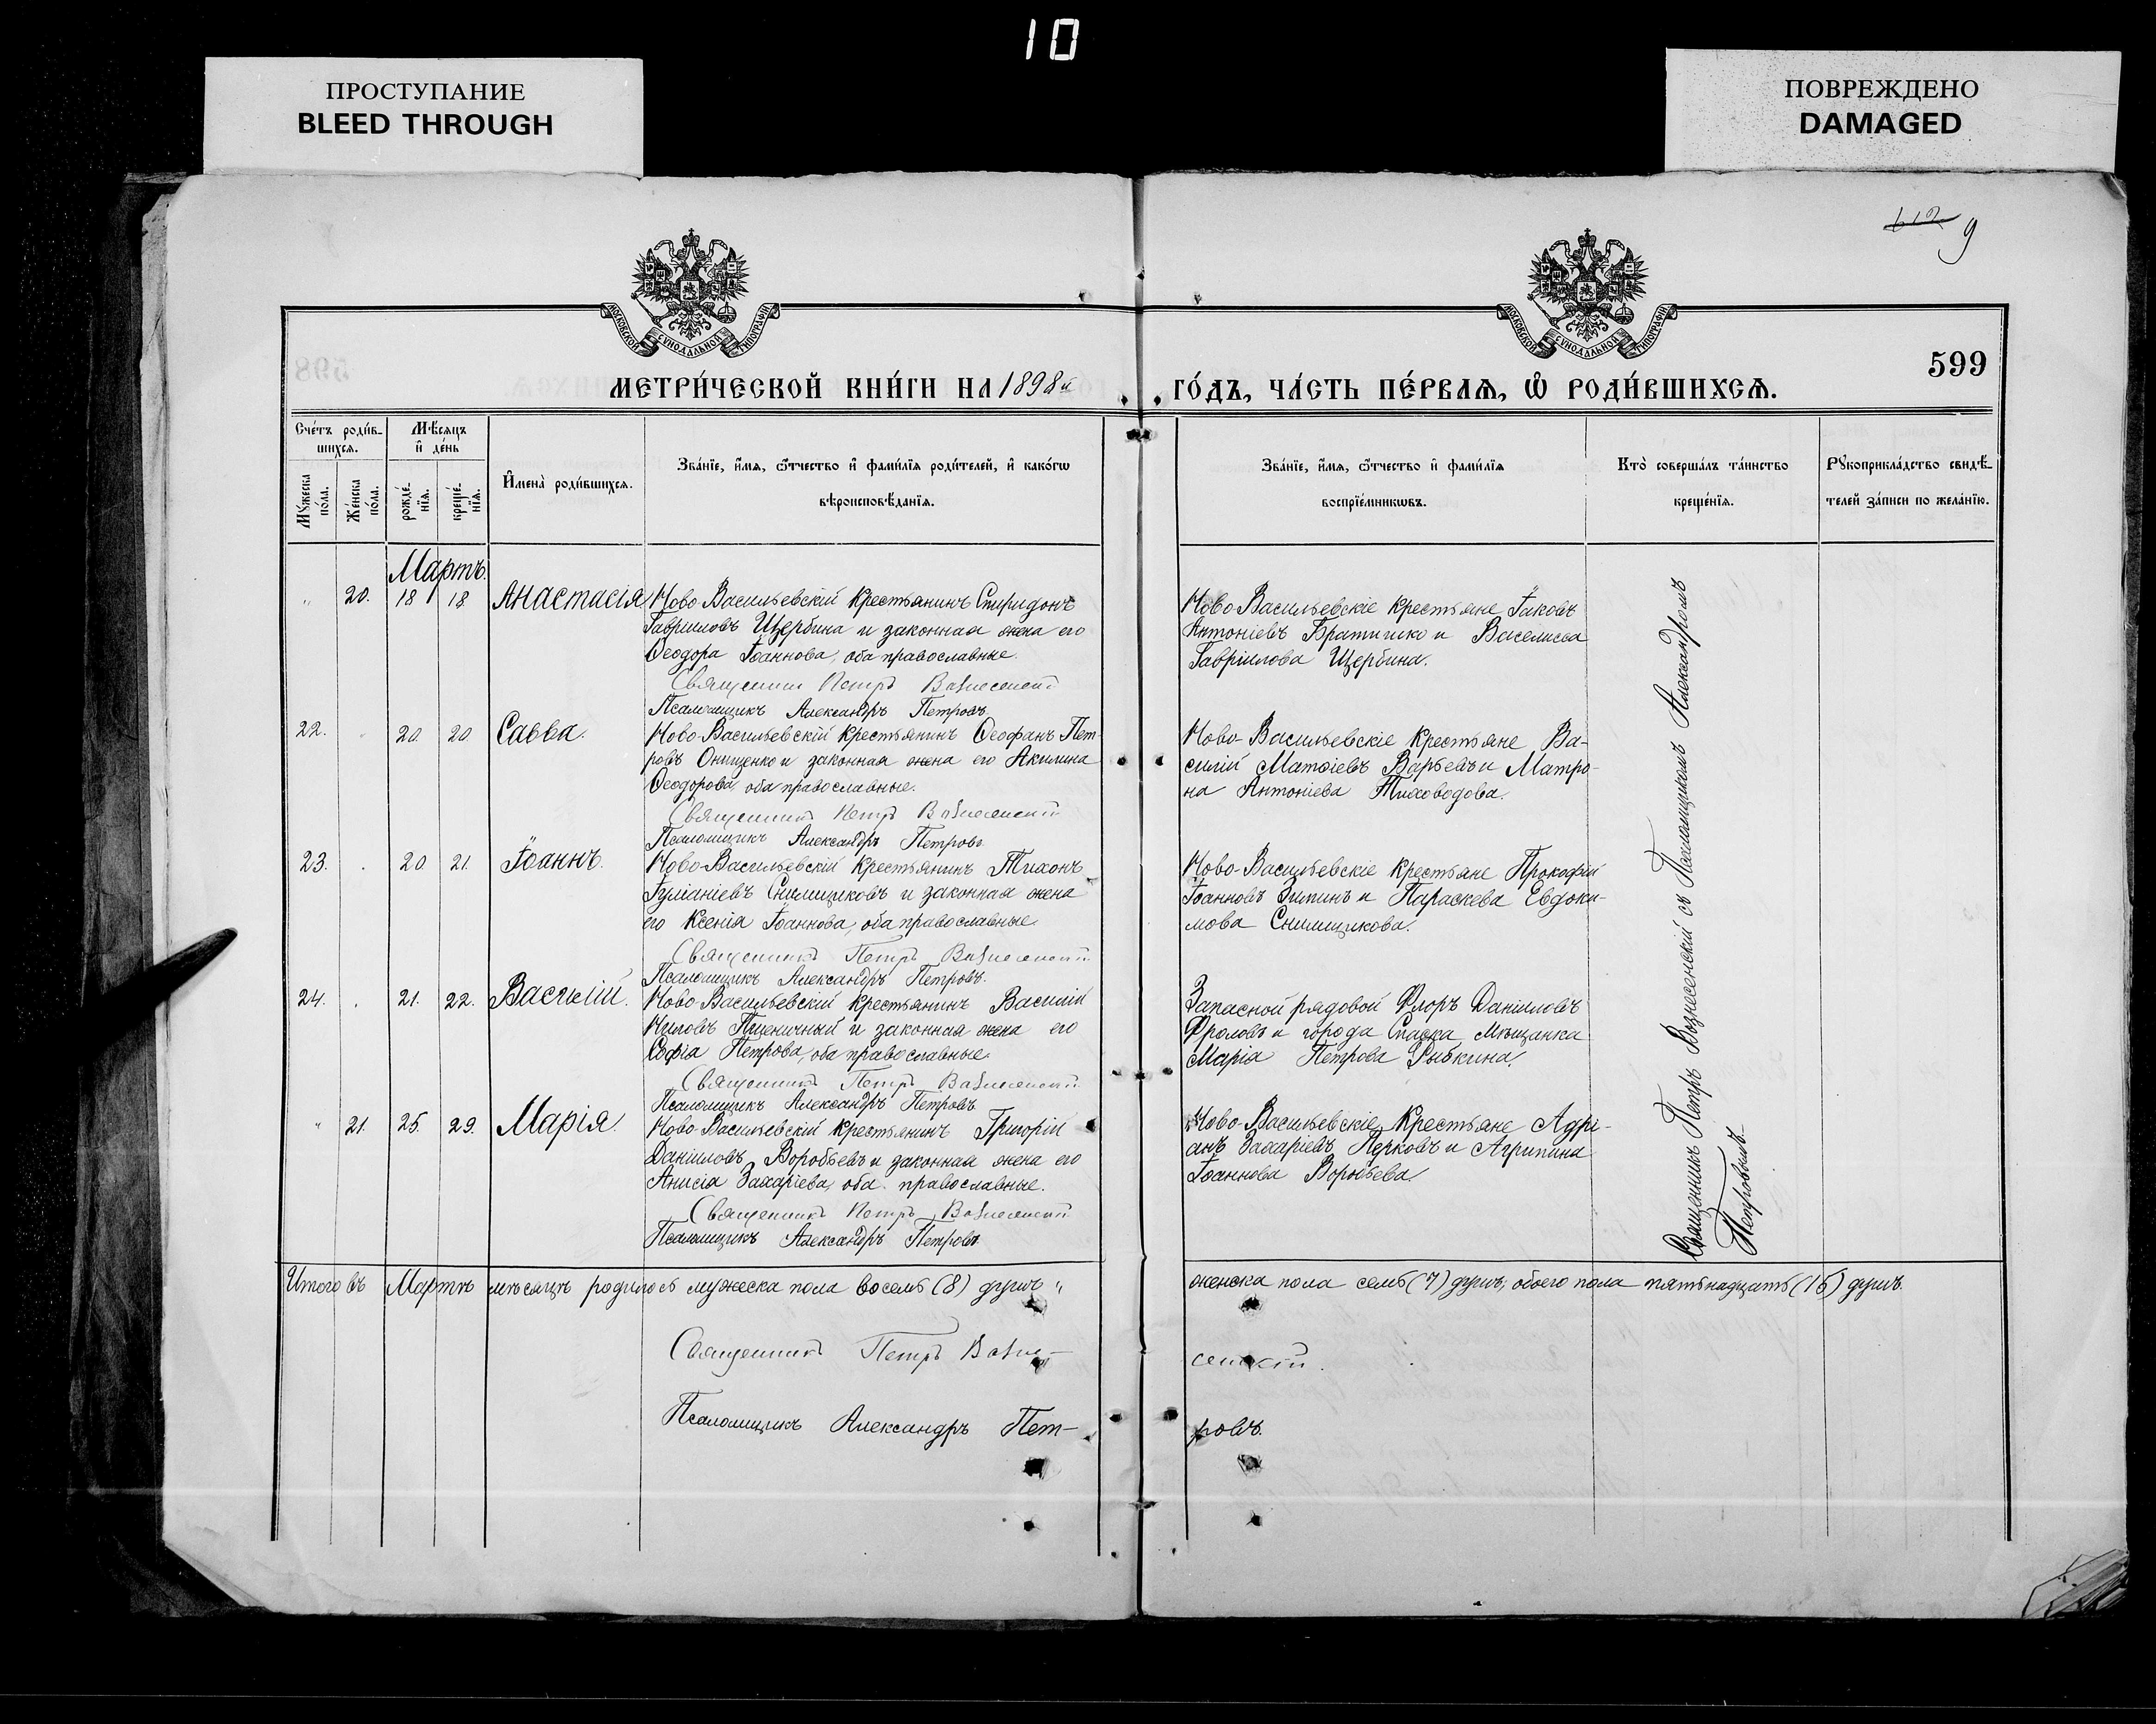 10
ПРОСТУПАНИЕ
BLEED THROUGH
ПОВРЕЖДЕНО
DAMAGED
612 9
МОСКОВСКОЙ СѴНОДАЛЬНОЙ ТИПОГРАФІИ
МОСКОВСКОЙ СѴНОДАЛЬНОЙ ТИПОГРАФІИ
599
МЕТРИ́ЧЕСКОЙ КНИ́ГИ НА 1898й
ГО́ДЪ, ЧА́СТЬ ПЕ́РВАѦ, Ѡ РОДИ́ВШИХСѦ.
Сче́тъ роди́в-
шихсѧ.
Мѣ́сѧцъ
и҆ де́нь
Мꙋ́жеска
по́ла.
Же́нска
по́ла.
рожде́-
нїѧ.
креще́-
нїѧ.
И҆мена̀ роди́вшихсѧ.
Зва́нїе, и҆́мѧ, ѻ҆́тчество и҆ фами́лїѧ роди́телей, и҆ како́гѡ
вѣроисповѣ́данїѧ.
Зва́нїе, и҆́мѧ, ѻ҆́тчество и҆ фами́лїѧ
воспрїе́мникѡвъ.
Кто̀ соверша́лъ та́инство
креще́нїѧ.
Рꙋкоприкла́дство свидѣ́-
телей за́писи по жела́нїю.
Мартъ.
" 20. 18 18 Анастасія Ново-Васильевскій крестьянинъ Спиридонъ
Гавриловъ Щербина и законная жена его
Ѳеодора Іоаннова, оба православные.
Священникъ Петръ Вознесенскій
Псаломщикъ Александръ Петровъ.
Ново-Васильевскіе крестьяне Іаковъ
Антоніевъ Братишко и Василиса
Гавріилова Щербина.
22. 20. 20 Савва. Ново-Васильевскій крестьянинъ Ѳеофанъ Пет-
ровъ Онищенко и законная жена его Акилина
Ѳеодорова, оба православные.
Священникъ Петръ Вознесенскій
Псаломщикъ Александръ Петровъ.
Ново-Васильевскіе крестьяне Ва-
силій Матѳіевъ и Матро-
на Антоніева Тиховодова.
23. 20 21. Іоаннъ. Ново-Васильевскій крестьянинъ Тихонъ
и законная жена
его Ксенія Іоаннова, оба православные.
Священникъ Петръ Вознесенскій
Псаломщикъ Александръ Петровъ.
Ново-Васильевскіе крестьяне Прокофій
Іоанновъ Зипинъ и Параскева Евдоки-
мова
24. 21. 22. Василій. Ново-Васильевскій крестьянинъ Василій
Ниловъ Пшеничный и законная жена его
Софія Петрова, оба православные.
Священникъ Петръ Вознесенскій
Псаломщикъ Александръ Петровъ
Запасной рядовой Флоръ Данииловъ
Фроловъ и города Спаска мѣщанка
Марія Петрова Рыбкина.
" 21. 25. 29. Марія. Ново-Васильевскій крестьянинъ Григорій
Данииловъ Воробьевъ и законная жена его
Анисія Захаріева, оба православные.
Священникъ Петръ Вознесенскій
Псаломщикъ Александръ Петровъ
Ново-Васильевскіе крестьяне Адрі-
анъ Захаріевъ Перковъ и Агрипина
Іоаннова Воробьева.
Священникъ Петръ Вознесенскій съ Псаломщикомъ Александромъ
Петровымъ.
Итого въ Мартѣ мѣсяцѣ родилось мужеска пола восемь (8) душъ "
женска пола семь (7) душъ, обоего пола пятьнадцать (15) душъ.
Священникъ Петръ Возне-
сенскій.
Псаломщикъ Александръ Пет-
ровъ.